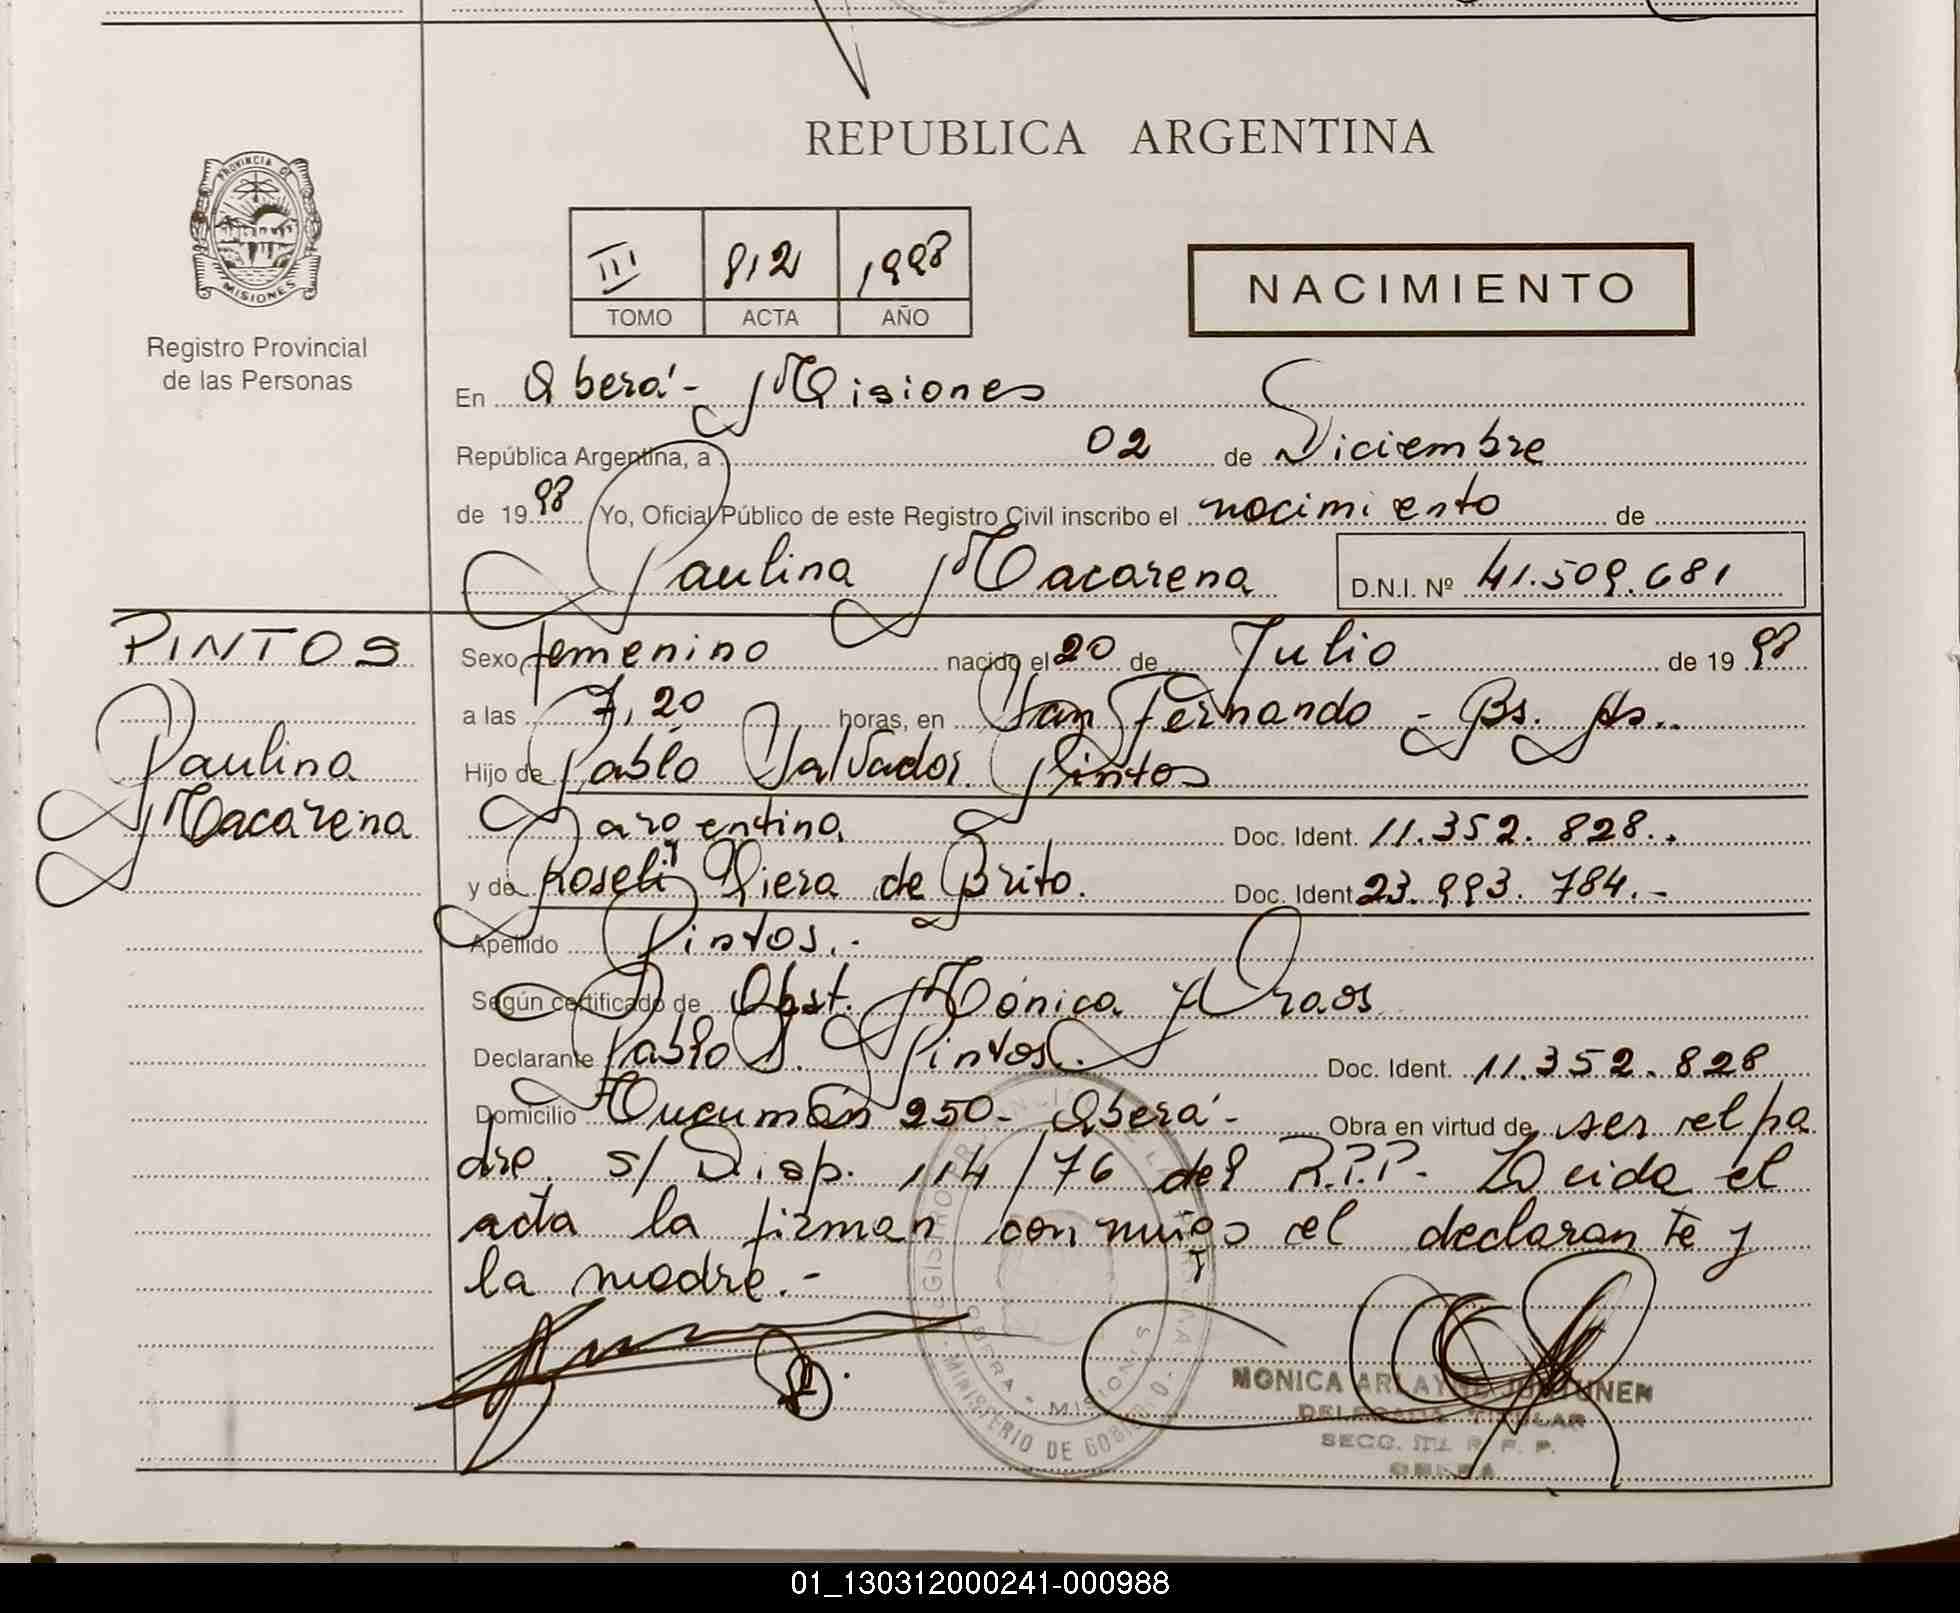 REPUBLICA ARGENTINA
PROVINCIA DE
MISIONES
Registro Provincial
de las Personas
III 812 1998
TOMO ACTA AÑO
NACIMIENTO
En Oberá - Misiones
República Argentina, a 02 de Diciembre
de 1998 Yo, Oficial Público de este Registro Civil inscribo el nacimiento de
Paulina Macarena D.N.I. Nº 41.509.681
PINTOS
Paulina
Macarena
Sexo femenino nacido el 20 de Julio de 1998
a las 7,20 horas, en San Fernando - Bs. As..
Hijo de Pablo Salvador Pintos
argentina Doc. Ident. 11.352.828..
y de Roseli Viera de Brito. Doc. Ident 23.993.784.-
Apellido Pintos.-
Según certificado de Obst. Mónica Araos
Declarante Pablo S. Pintos. Doc. Ident. 11.352.828
Domicilio Tucumán 250 - Oberá - Obra en virtud de ser el pa
dre. s/ Disp. 114/76 del R.P.P. Leida el
acta la firman conmigo el declarante y
la madre.-
OBERA - MISIONES
MINISTERIO DE GOBIERNO
MONICA
DELEGADA TITULAR
SECC. R. P. P.
OBERA
01_130312000241-000988